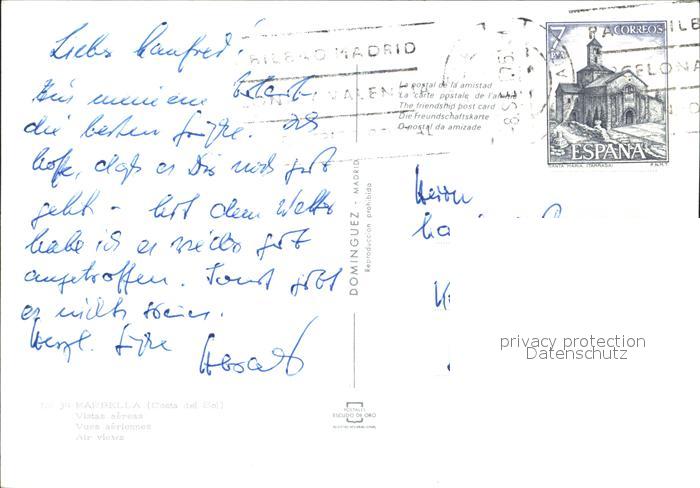 Lieber Manfred!
Aus meinem Urlaub
die besten Grüße. Ich
hoffe, daß es Dir recht gut
geht - mit dem Wetter
habe ich es wieder gut
angetroffen. Sonst gibt
es nichts Neues.
Herzl. Grüße
Herrn
BILBAO MADRID
VALENCIA
BARCELONA
CORREOS
ESPAÑA
SANTA MARIA (TARRASA)
F.N.M.T.
La postal de la amistad
La carte postale de l'am
The friendship post card
Die Freundschaftskarte
O postal da amizade
DOMINGUEZ - MADRID
Reproduccion prohibida
privacy protection
Datenschutz
39 MARBELLA (Costa del Sol)
Vistas aéreas
Vues aériennes
Air views
POSTALES
ESCUDO DE ORO